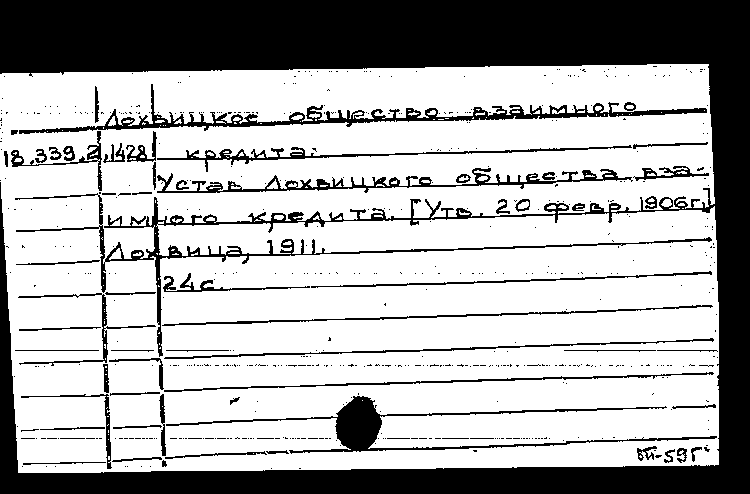 Лохвицкое общество взаимного
18.339.2.1428 кредита.
Устав Лохвицкого общества вза-
имного кредита. [Утв. 20 февр. 1906г.]
Лохвица, 1911.
24с.
ВП-59г